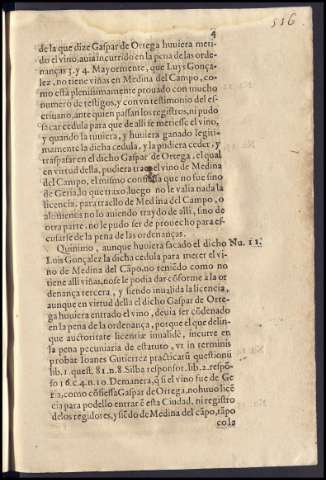 516
4
de la que dize Gaspar de Ortega huuiera meti-
do el vino, auia incurrido en la pena de las orde-
nanças 3. y 4. Mayormente, que Luys Gonça-
lez, no tiene viñas en Medina del Campo, co-
mo està plenissimamente prouado con mucho
numero de testigos, y con vn testimonio del es-
criuano, ante quien passan los registros, ni pudo
sacar cedula para que de alli se metiesse el vino,
y quando la tuuiera, y huuiera ganado legiti-
mamente la dicha cedula, y la pudiera ceder, y
traspassar en el dicho Gaspar de Ortega, el qual
en virtud della, pudiera traer el vino de Medina
del Campo, el mismo confiessa que no fue sino
de Geria lo que traxo, luego no le valia nada la
licencia, para traello de Medina del Campo, o
alomenos no lo auiendo traydo de alli, sino de
otra parte, no le pudo ser de prouecho para es-
cusarse de la pena de las ordenanças.
Quinimo, aunque huuiera sacado el dicho Nu. 11.
Luis Gonçalez la dicha cedula para meter el vi-
no de Medina del Cãpo, no teniẽdo como no
tiene alli viñas, no se le podia dar cõforme à la or
denança tercera, y siendo inualida la licencia,
aunque en virtud della el dicho Gaspar de Orte-
ga huuiera entrado el vino, deuia ser cõdenado
en la pena de la ordenança, porque el que delin-
que auctoritate licentiæ inualidæ, incurre en
la pena pecuniaria de estatuto, vt in terminis
probat Ioanes Gutierrez practicarũ questionũ
lib. 1. quest. 81. n. 8 Silba responsor. lib. 2. respõ-
so 16. c. 4. n. 10. Demanera, q̃ si el vino fue de Ge
ria, como cõfiessa Gaspar de Ortega, no huuo licẽ
cia para podello entrar ẽ esta Ciudad, ni registro
de los regidores, y siẽdo de Medina del cãpo, tãpo
co la